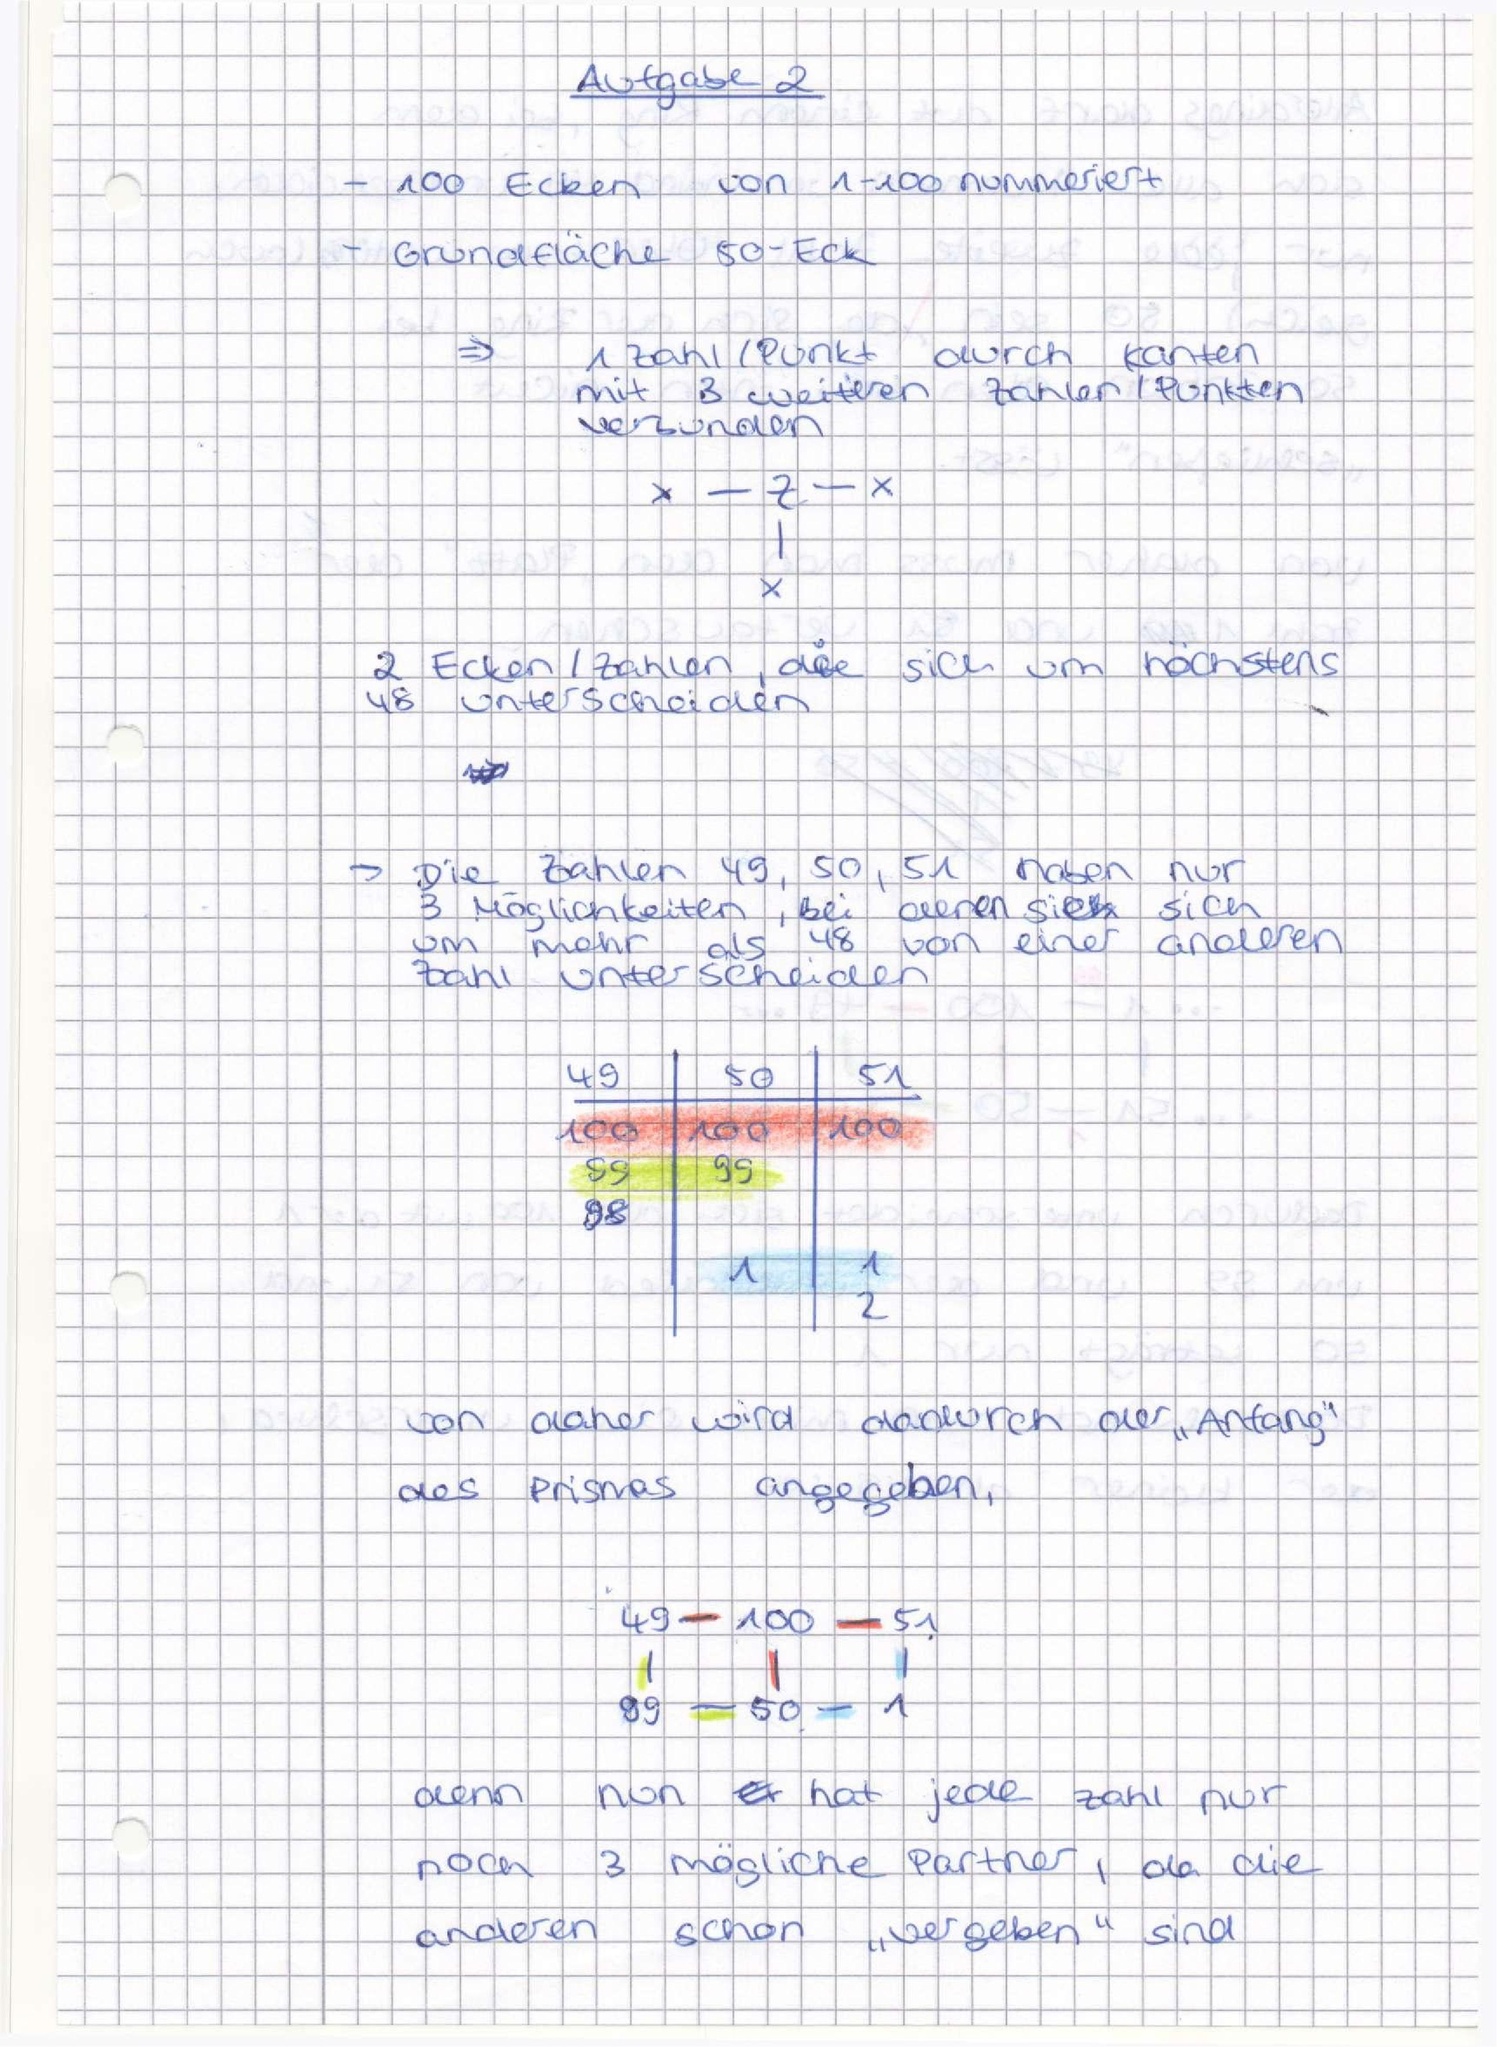 Aufgabe 2
- 100 Ecken von 1-100 nummeriert
- Grundfläche 50-Eck
⇒ 1 Zahl/Punkt durch Kanten
mit 3 weiteren Zahlen/Punkten
verbunden
x — Z — x
|
x
2 Ecken/Zahlen, die sich um höchstens
48 unterscheiden
→ Die Zahlen 49, 50, 51 haben nur
3 Möglichkeiten, bei denen sich
um mehr als 48 von einer anderen
Zahl unterscheiden
49 | 50 | 51
100 | 100 | 100
99 | 99
98
1 | 1
2
von daher wird dadurch der „Anfang"
des Prismas angegeben,
49 — 100 — 51
| | |
99 — 50 — 1
denn nun hat jede Zahl nur
noch 3 mögliche Partner, da die
anderen schon „vergeben" sind